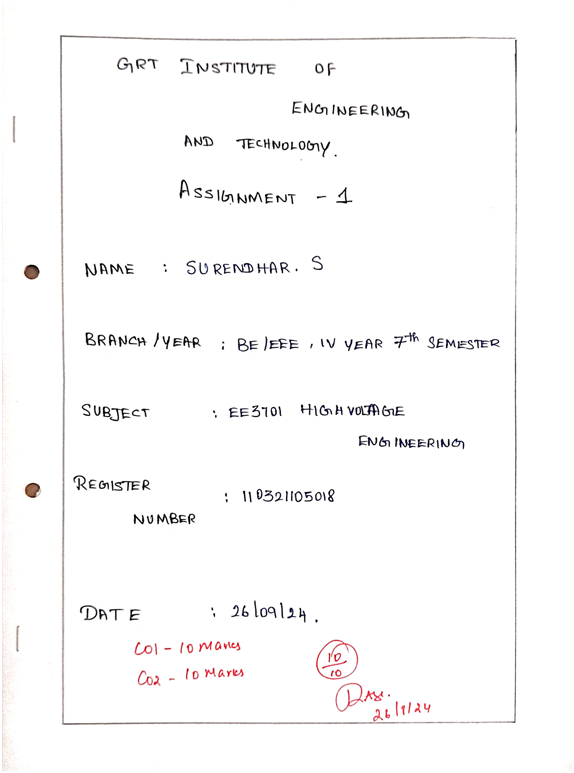 GRT INSTITUTE OF
ENGINEERING
AND TECHNOLOGY.
ASSIGNMENT - 1
NAME : SURENDHAR. S
BRANCH / YEAR : BE / EEE , IV YEAR 7th SEMESTER
SUBJECT : EE3701 HIGH VOLTAGE
ENGINEERING
REGISTER
NUMBER : 110321105018
DATE : 26/09/24.
CO1 - 10 Marks
CO2 - 10 Marks
10
10
26/9/24